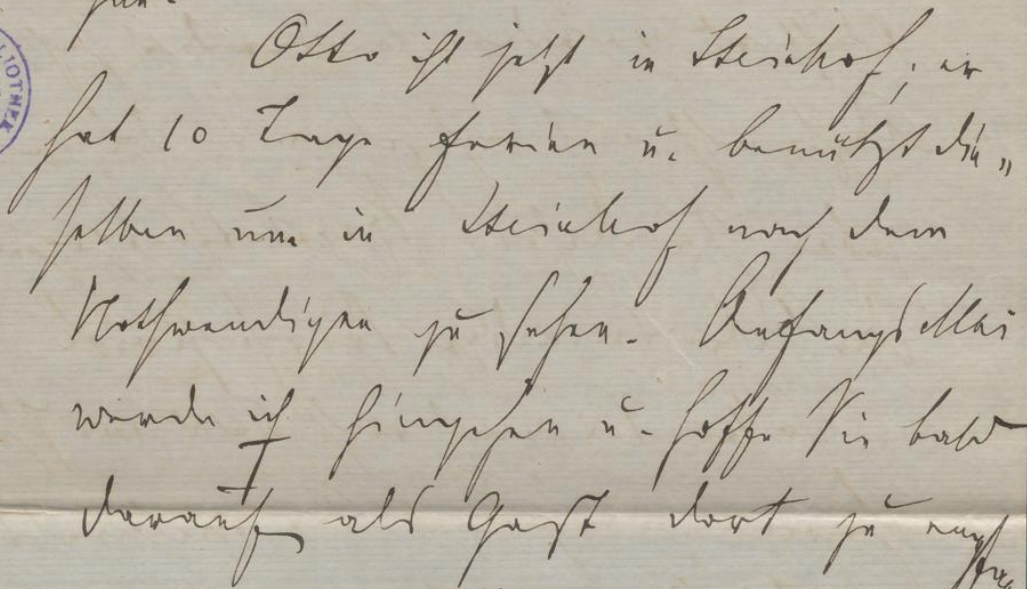 Otto ist jetzt in Steinhof, er
hat 10 Tage Ferien u. benützt die„
selben um in Steinhof nach dem
Nothwendigen zu sehen. Anfangs Mai
werde ich hingehen u. hoffe Sie bald
darauf als Gast dort zu empfan